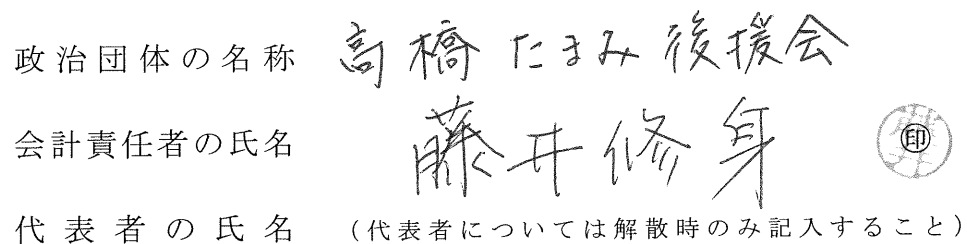 政治団体の名称 高橋たまみ後援会
会計責任者の氏名 藤井修身 印
代表者の氏名 (代表者については解散時のみ記入すること)